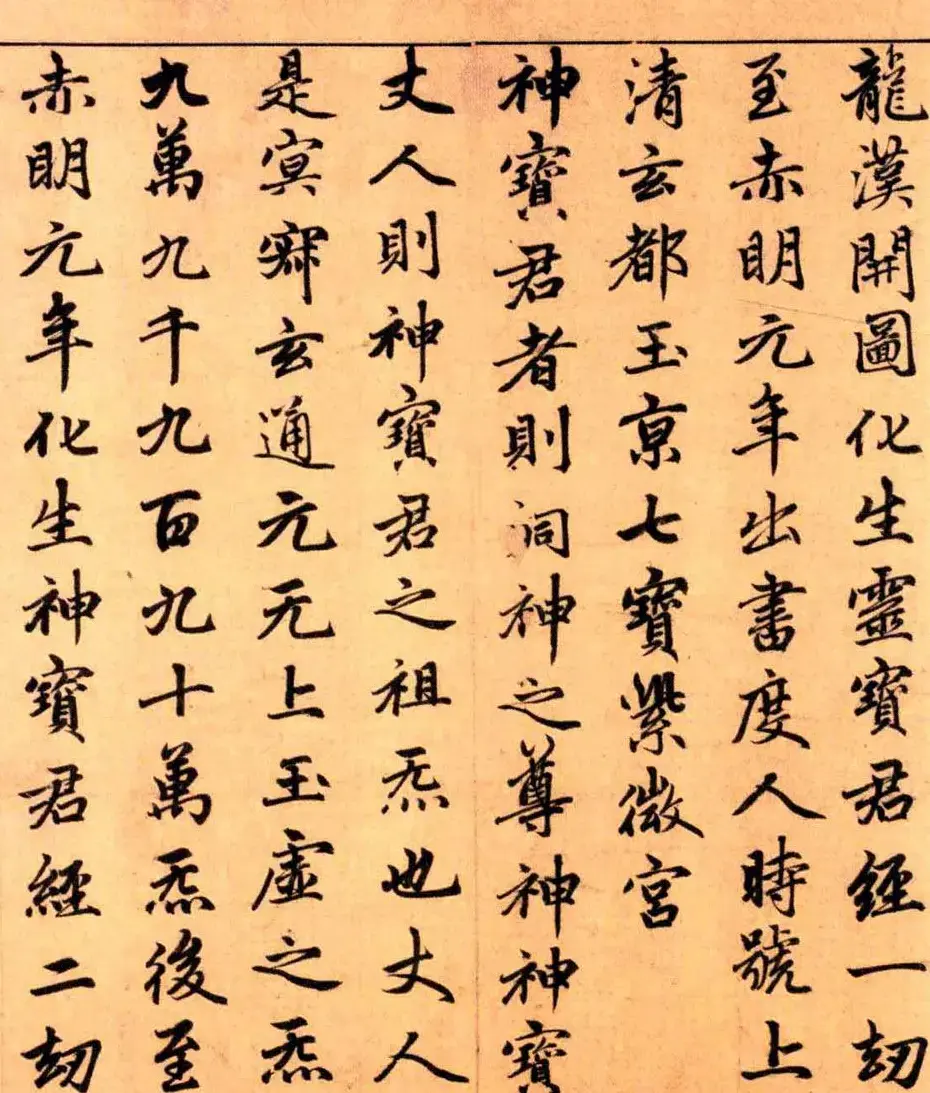 龍漢開圖化生靈寶君經一劫
至赤明元年出書度人時號上
清玄都玉京七寶紫微宮
神寶君者則洞神之尊神神寶
丈人則神寶君之祖炁也丈人
是冥寂玄通元无上玉虛之炁
九萬九千九百九十萬炁後至
赤明元年化生神寶君經二劫